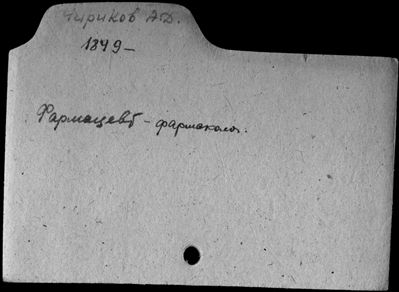 Чириков А.Д.
1849–
Фармацевт - фармаколог.